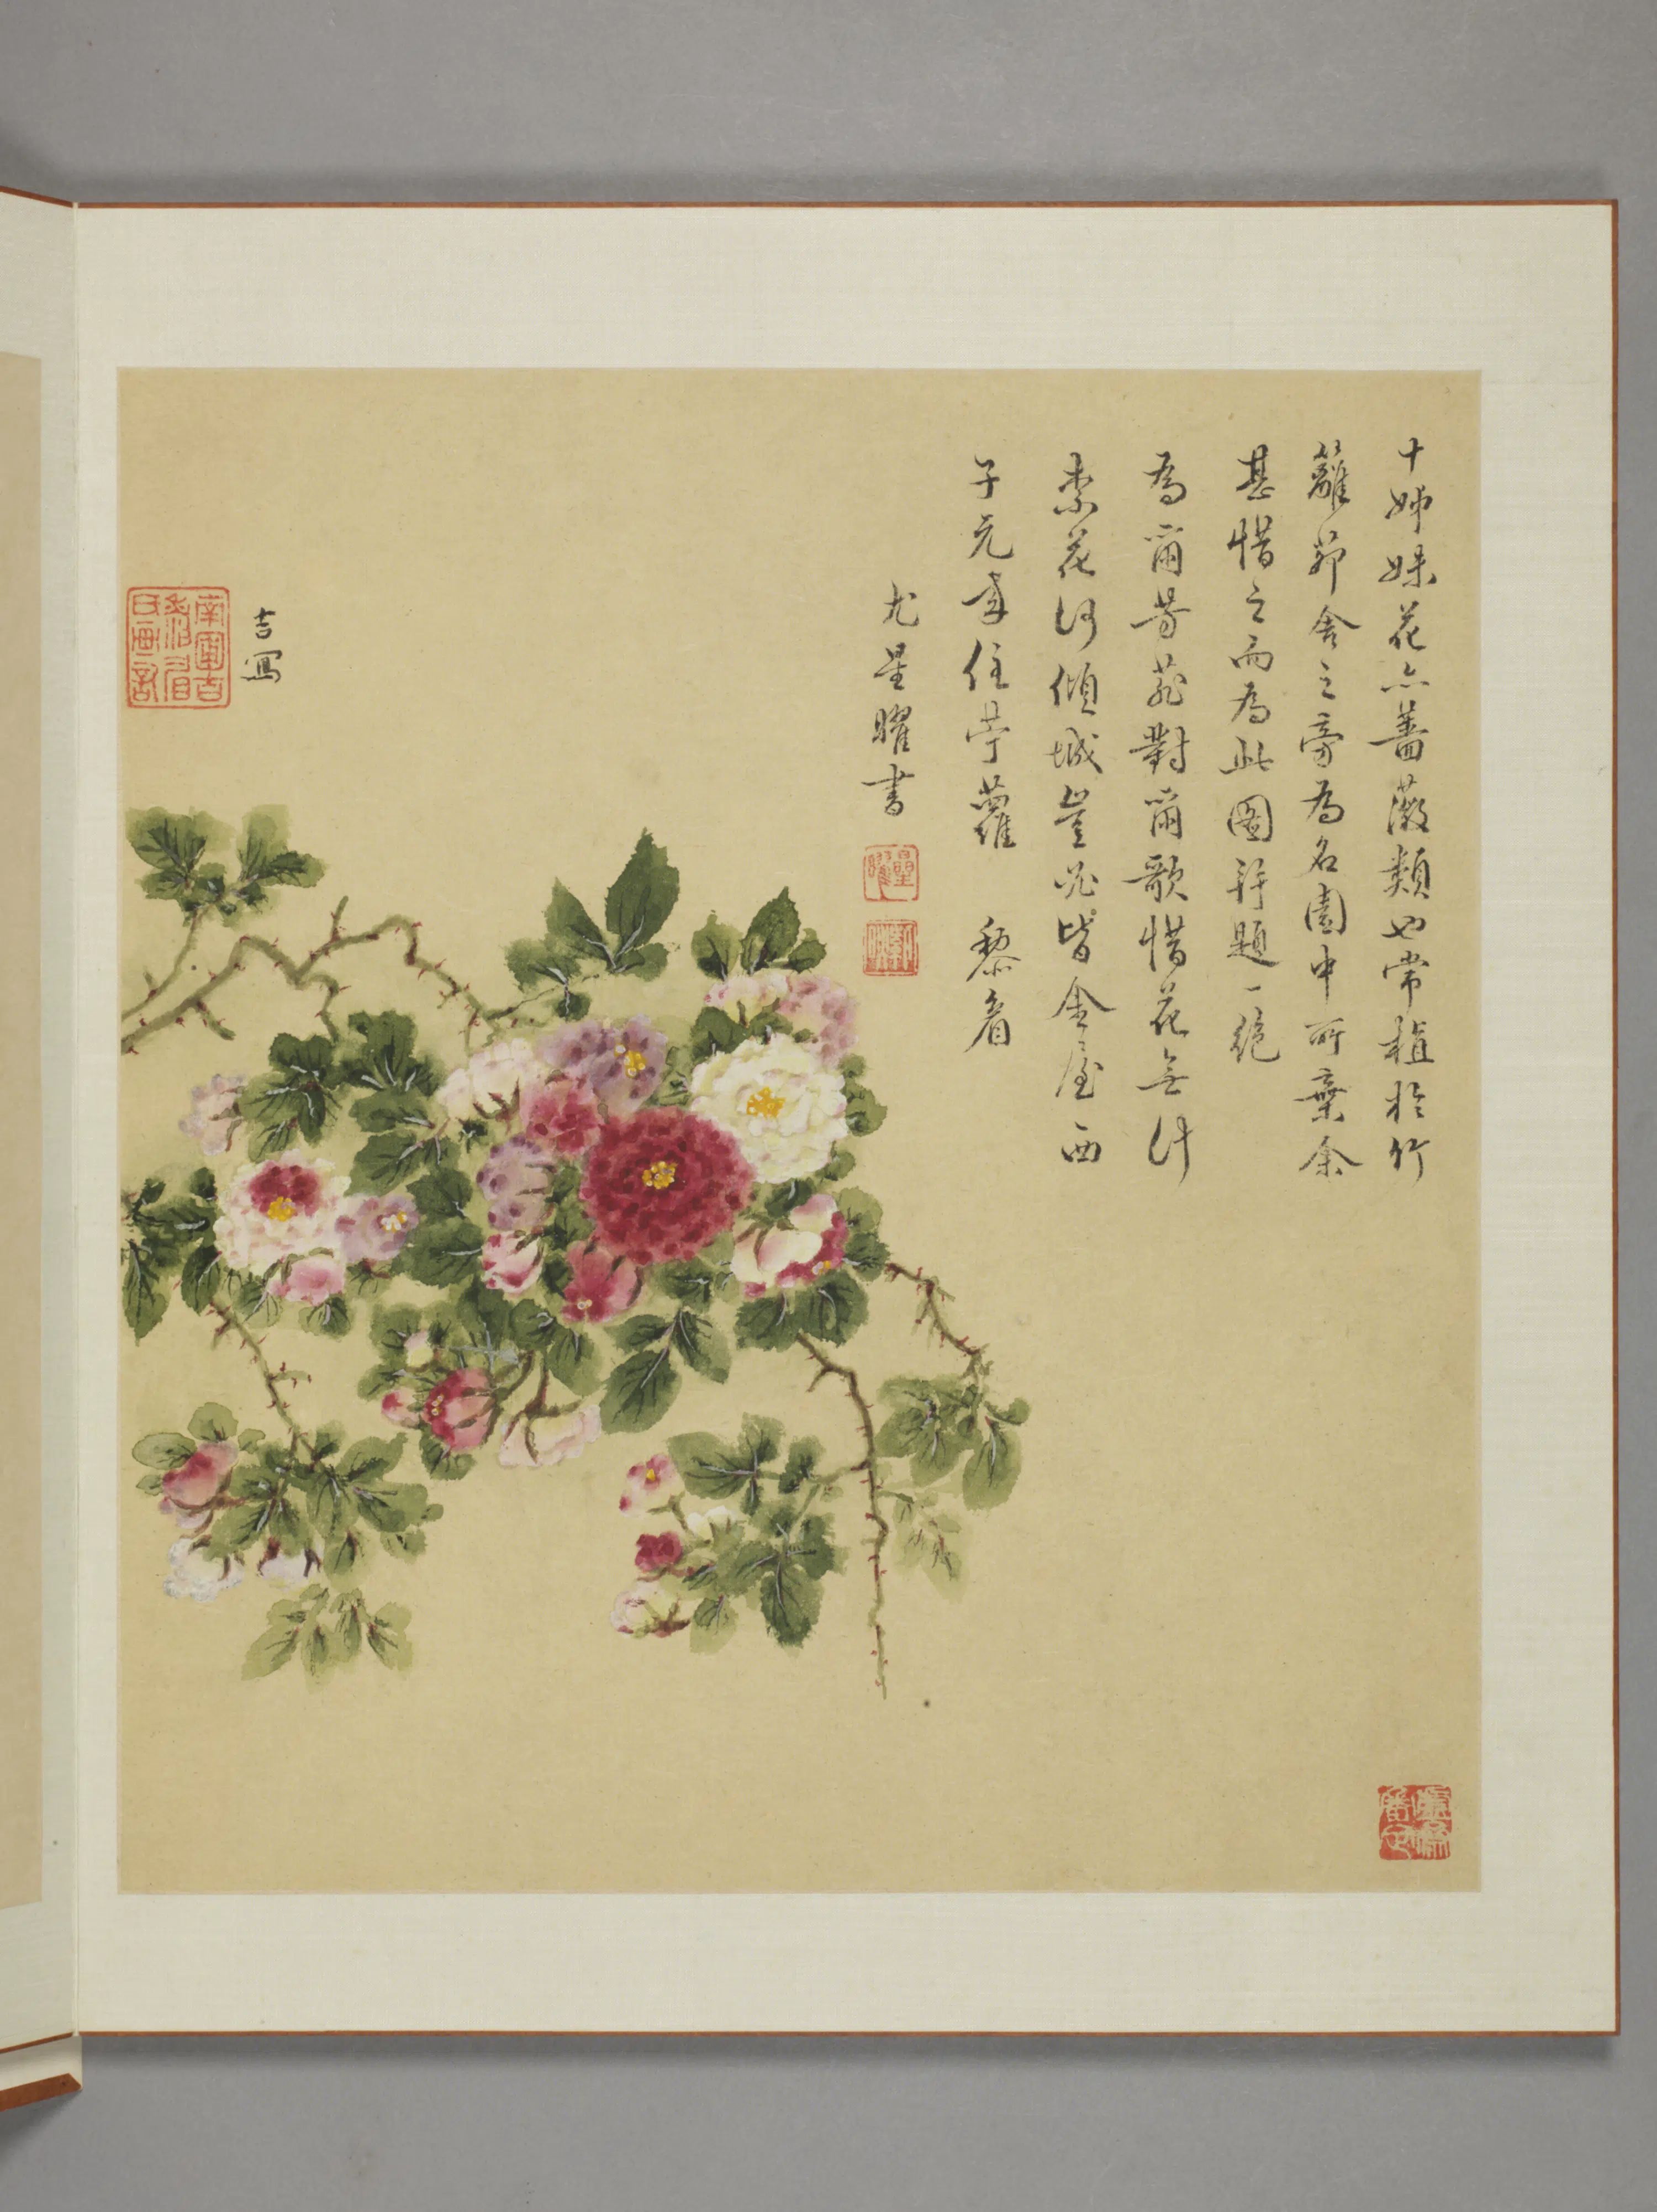 十姊妹花亦薔薇類也常植於竹
籬茆舍之旁為名園中所棄余
甚惜之而為此圖并題一絕
為爾芳菲對爾歌惜花無計
奈花何傾城豈必皆金屋西
子元來住苧蘿 黎眉
尤星曜書
星曜
吉寫